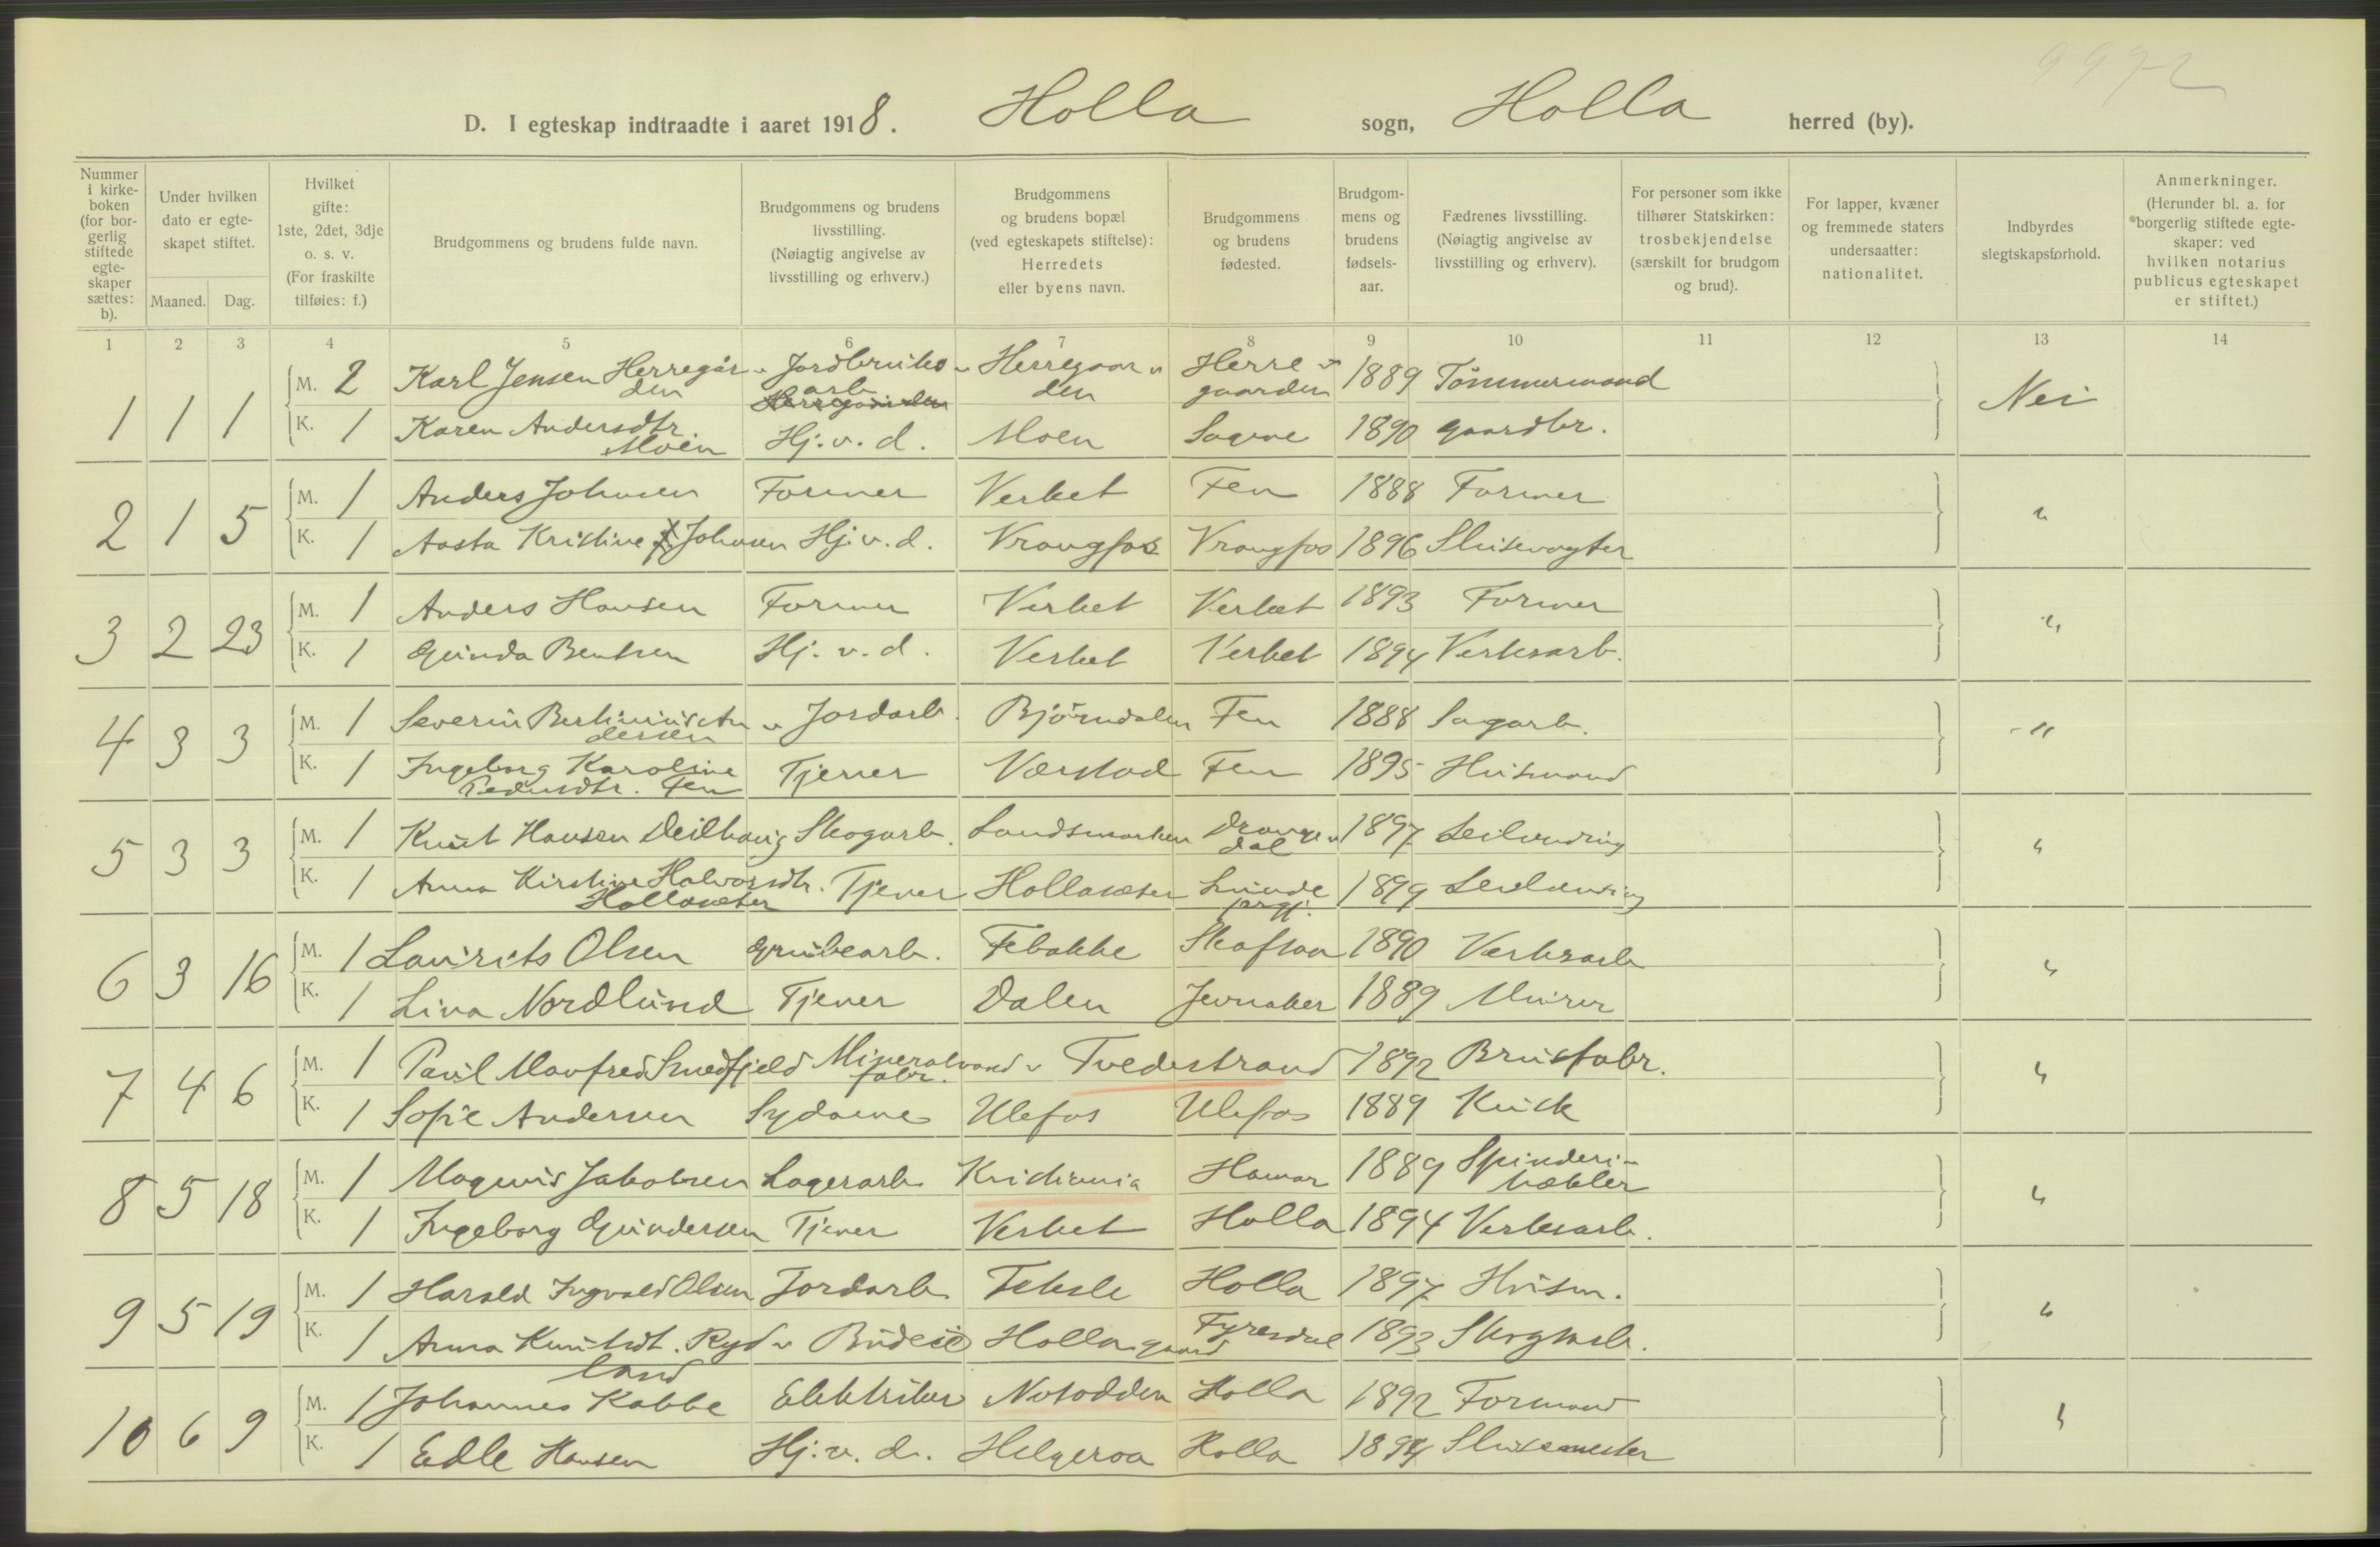 D. I egteskap indtraadte i aaret 1918. Holla sogn, Holla herred (by).
Nummer i kirkeboken (for borgerlig stiftede egteskaper sættes: b).
Under hvilken dato er egteskapet stiftet.
Maaned. Dag.
Hvilket gifte: 1ste, 2det, 3dje o. s. v. (For fraskilte tilføies: f.)
Brudgommens og brudens fulde navn.
Brudgommens og brudens livsstilling. (Nøiagtig angivelse av livsstilling og erhverv.)
Brudgommens og brudens bopæl (ved egteskapets stiftelse): Herredets eller byens navn.
Brudgommens og brudens fødested.
Brudgommens og brudens fødselsaar.
Fædrenes livsstilling. (Nøiagtig angivelse av livsstilling og erhverv).
For personer som ikke tilhører Statskirken: trosbekjendelse (særskilt for brudgom og brud).
For lapper, kvæner og fremmede staters undersaatter: nationalitet.
Indbyrdes slegtskapsforhold.
Anmerkninger. (Herunder bl. a. for borgerlig stiftede egteskaper: ved hvilken notarius publicus egteskapet er stiftet.)
1 2 3 4 5 6 7 8 9 10 11 12 13 14
1 1 1 M. 2 Karl Jensen Herregården Jordbruksarb Herregaarden Herregaarden 1889 Tömmermand Nei
K. 1 Karen Andersdtr. Moen Hj.v.d. Moen Sagene 1890 gaardbr.
2 1 5 M. 1 Anders Johnsen Former Verket Fen 1888 Former "
K. 1 Aasta Kristine Johnsen Hj.v.d. Vrangfos Vrangfos 1896 Slusevogter
3 2 23 M. 1 Anders Hansen Former Verket Verket 1893 Former "
K. 1 Gunda Bentsen Hj.v.d. Verket Verket 1894 Verksarb.
4 3 3 M. 1 Severin Andersen Jordarb. Björndalen Fen 1888 Sagarb. "
K. 1 Ingeborg Karoline Pedersdtr. Fen Tjener Værstad Fen 1895 Husmand
5 3 3 M. 1 Knut Hansen Deilhaug Skogarb. Landsmarken Drangedal 1897 Leilending "
K. 1 Anna Kirstine Halvorsdtr. Hollasæter Tjener Hollasæter Lunde prgj. 1899 Leilending
6 3 16 M. 1 Laurits Olsen Grubearb. Febakke Skafsaa 1890 Verksarb "
K. 1 Lina Nordlund Tjener Dalen Jevnaker 1889 Murer
7 4 6 M. 1 Paul Manfred Smedfjeld Mineralvandfabr. Tvedestrand 1892 Brusfabr. "
K. 1 Sofie Andersen Sydame Ulefos Ulefos 1889 Kusk
8 5 18 M. 1 Magnus Jakobsen Lagerarb. Kristiania Hamar 1889 "
K. 1 Ingeborg Gundersen Tjener Verket Holla 1894 Verksarb.
9 5 19 M. 1 Harald Ingvald Olsen Jordarb. Teksle Holla 1897 Husm. "
K. 1 Anna Knutsdt. Rydland Budeie Holla gaard Fyresdal 1893 Skogarb.
10 6 9 M. 1 Johannes Kabbe Elektriker Notodden Holla 1892 Formand "
K. 1 Edle Hansen Hj.v.d. Helgeroa Holla 1894 Slusemester